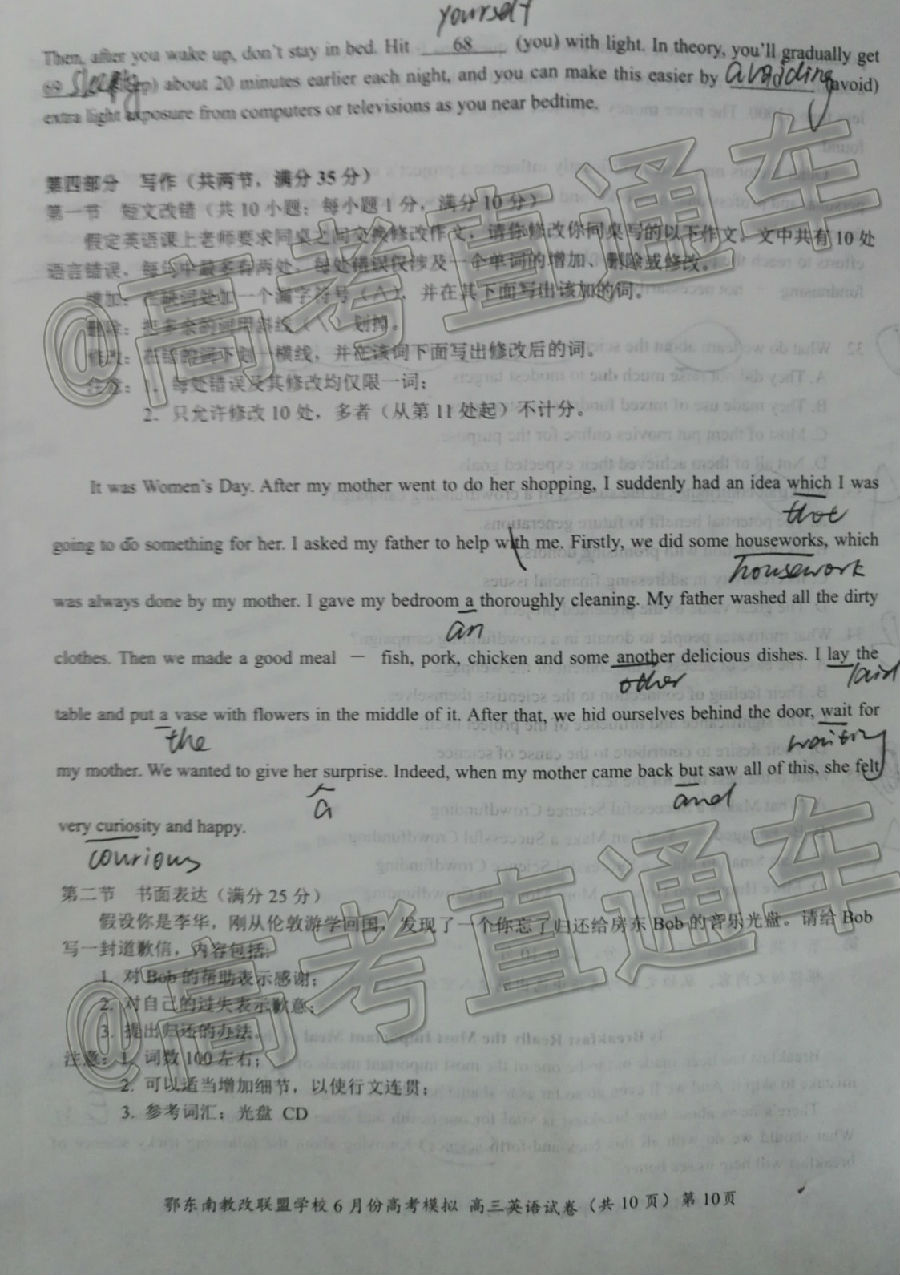 yourself
Then, after you wake up, don't stay in bed. Hit 68 (you) with light. In theory, you'll gradually get
69 sleepy about 20 minutes earlier each night, and you can make this easier by avoiding (avoid)
extra light exposure from computers or televisions as you near bedtime.
第四部分 写作（共两节，满分35分）
第一节 短文改错（共10小题；每小题1分，满分10分）
假定英语课上老师要求同桌之间交换修改作文，请你修改你同桌写的以下作文。文中共有10处
语言错误，每句中最多有两处。每处错误仅涉及一个单词的增加、删除或修改。
增加：在缺词处加一个漏字符号（∧），并在其下面写出该加的词。
删除：把多余的词用斜线（\）划掉。
修改：在错的词下划一横线，并在该词下面写出修改后的词。
注意：1．每处错误及其修改均仅限一词；
2．只允许修改10处，多者（从第11处起）不计分。
It was Women's Day. After my mother went to do her shopping, I suddenly had an idea which I was
that
going to do something for her. I asked my father to help with me. Firstly, we did some houseworks, which
housework
was always done by my mother. I gave my bedroom a thoroughly cleaning. My father washed all the dirty
an
clothes. Then we made a good meal — fish, pork, chicken and some another delicious dishes. I lay the
other laid
table and put a vase with flowers in the middle of it. After that, we hid ourselves behind the door, wait for
the waiting
my mother. We wanted to give her surprise. Indeed, when my mother came back but saw all of this, she felt
a and
very curiosity and happy.
courious
第二节 书面表达（满分25分）
假设你是李华，刚从伦敦游学回国，发现了一个你忘了归还给房东Bob的音乐光盘。请给Bob
写一封道歉信，内容包括：
1. 对Bob的帮助表示感谢；
2. 对自己的过失表示歉意；
3. 提出归还的办法。
注意：1. 词数100左右；
2. 可以适当增加细节，以使行文连贯；
3. 参考词汇：光盘 CD
鄂东南教改联盟学校6月份高考模拟 高三英语试卷（共10页）第10页
@高考直通车
@高考直通车